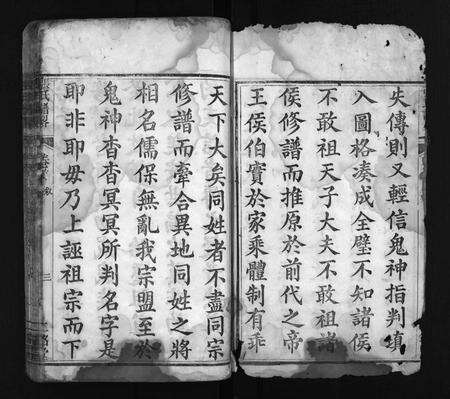 失傳則又輕信鬼神指判填
入圖格湊成全璧不知諸侯
不敢祖天子大夫不敢祖諸
侯修譜而推原於前代之帝
王侯伯實於家乘體制有乖
天下大矣同姓者不盡同宗
修譜而牽合異地同姓之將
相名儒保無亂我宗盟至於
鬼神杳杳冥冥所判名字是
耶非耶毋乃上誣祖宗而下
三